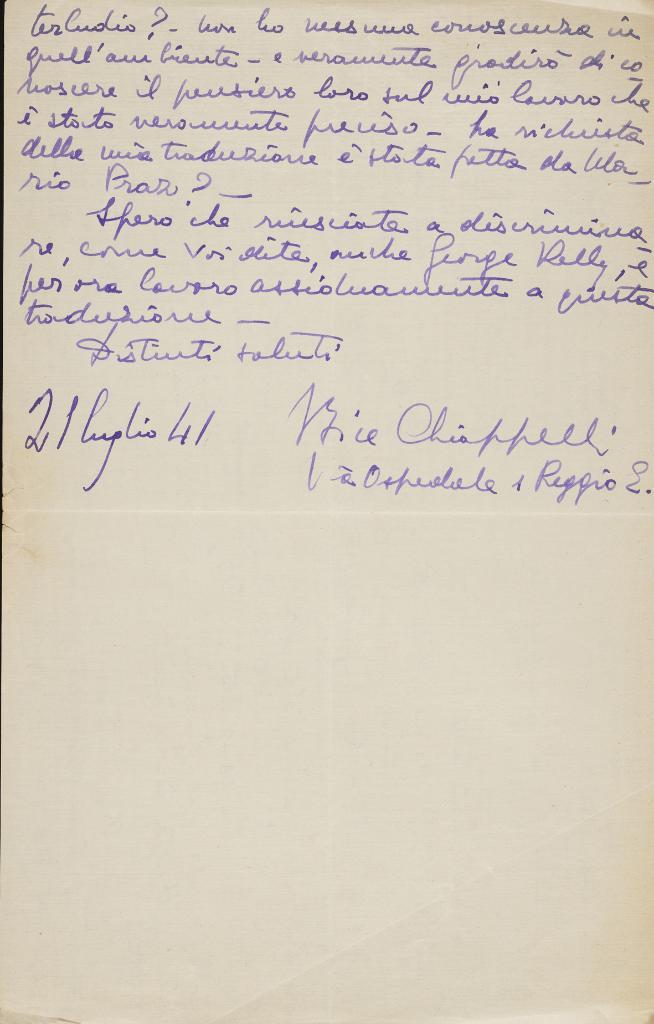 terludio? - non ho nessuna conoscenza in
quell'ambiente - e veramente gradirò di co
noscere il pensiero loro sul mio lavoro che
è stato veramente preciso - ha richiesta
della mia traduzione è stata fatta da Ma-
rio Praz? -
Spero che riusciate a discrimina
re, come voi dite, anche George Kelly, e
per ora lavoro assiduamente a questa
traduzione -
Distinti saluti
21 luglio 41 Bice Chiappelli
Via Ospedale 1 Reggio E.